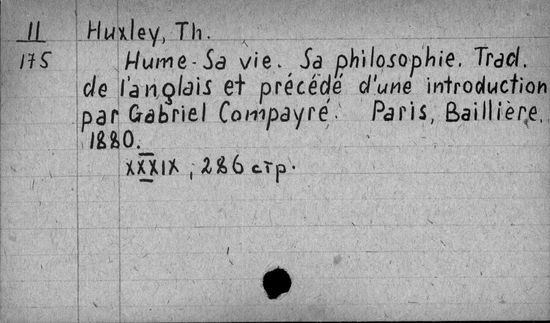 II Huxley, Th.
175 Hume-Sa vie. Sa philosophie. Trad.
de l'anglais et précédé d'une introduction
par Gabriel Compayré. Paris, Baillière,
1880.
XXXIX, 286 стр.